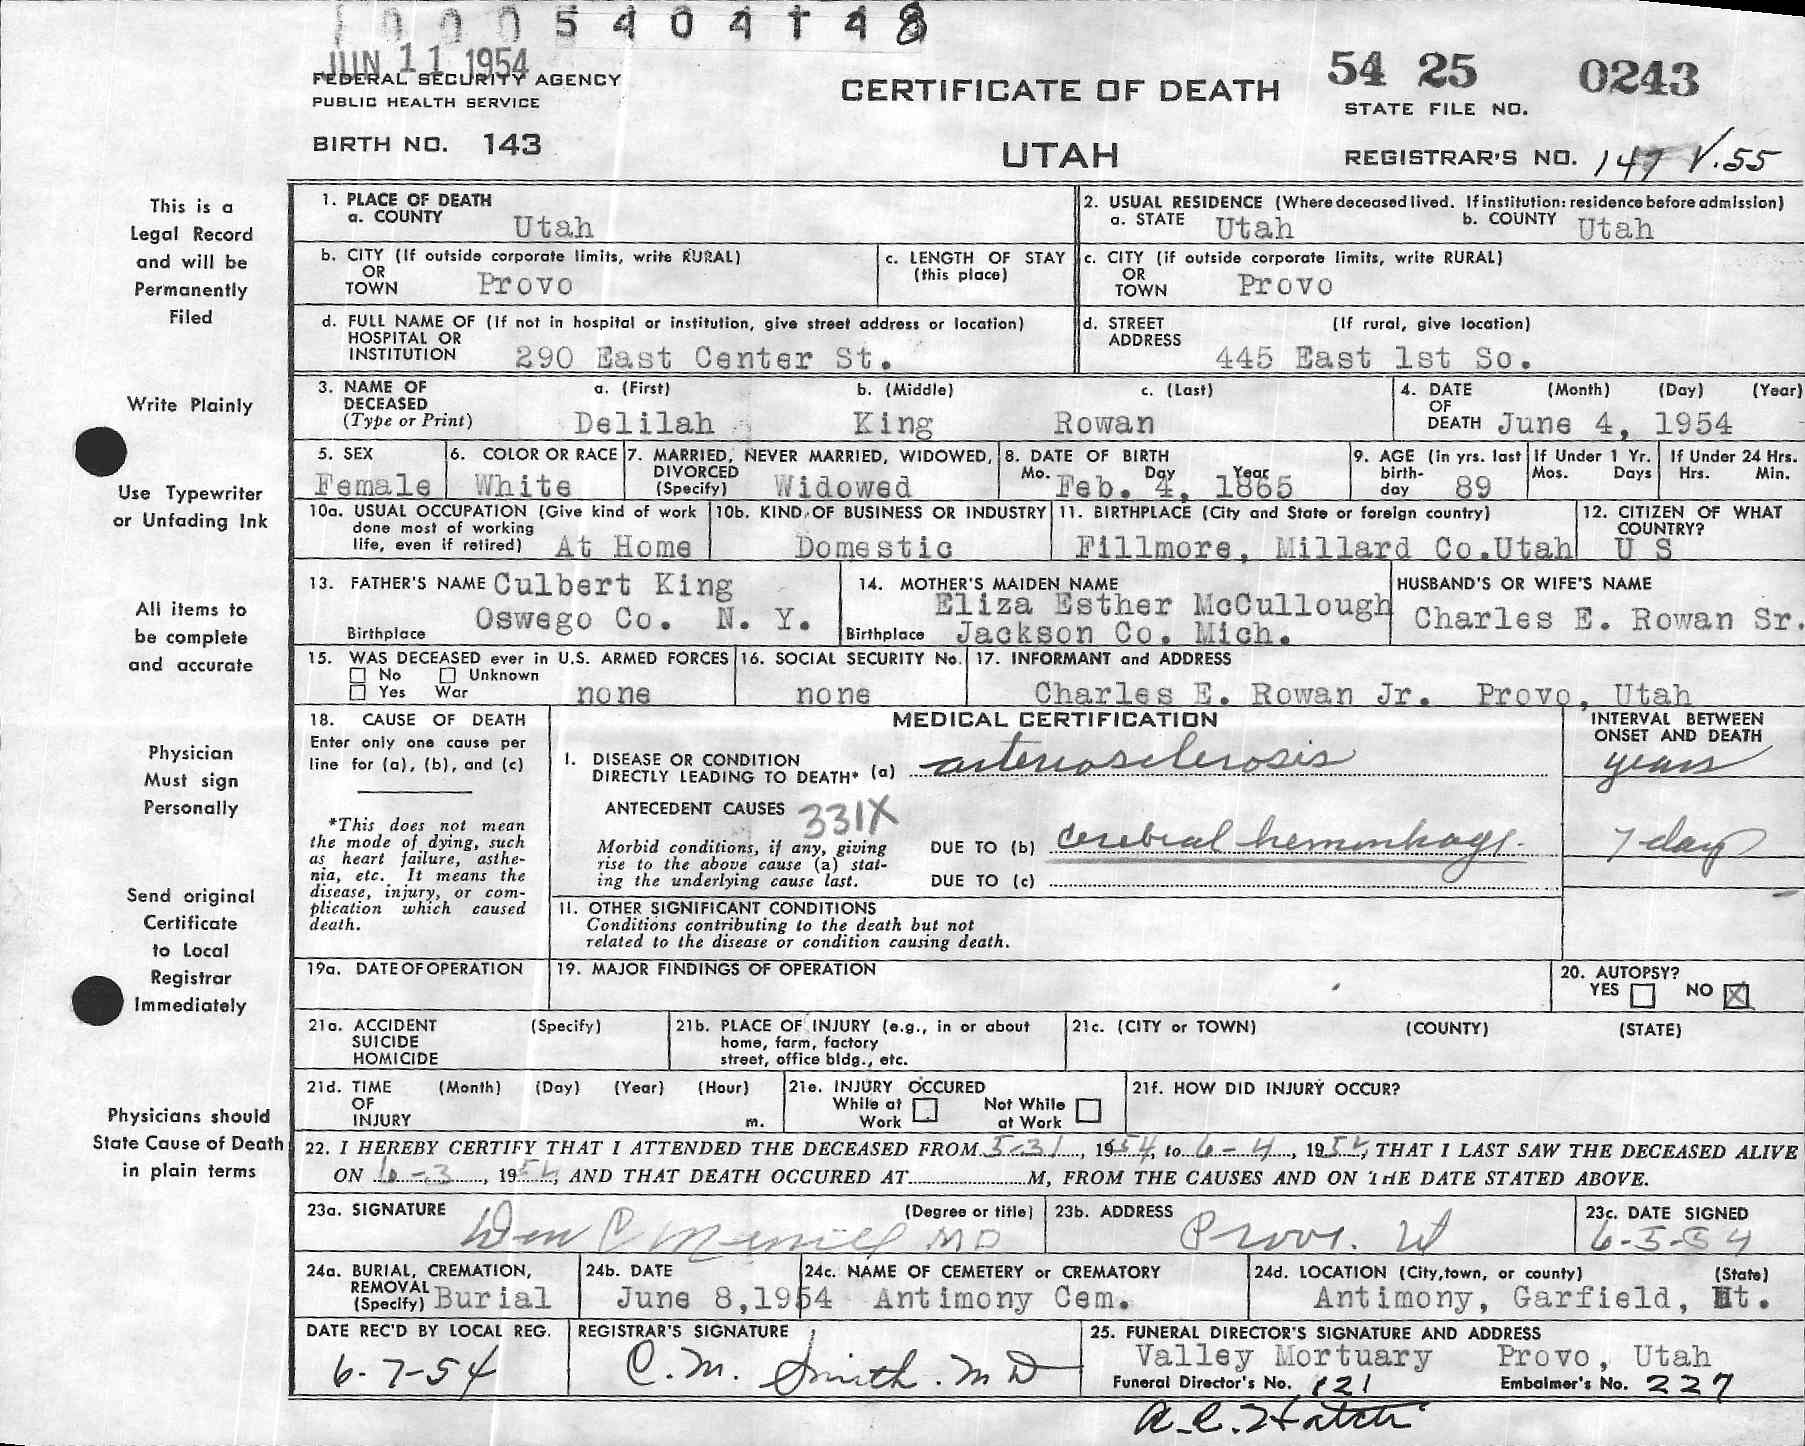 1 0 0 0 5 4 0 4 1 4 8
JUN 11 1954
FEDERAL SECURITY AGENCY
PUBLIC HEALTH SERVICE
BIRTH NO. 143
CERTIFICATE OF DEATH
UTAH
54 25 0243
STATE FILE NO.
REGISTRAR'S NO. 147 V.55
This is a
Legal Record
and will be
Permanently
Filed
Write Plainly
Use Typewriter
or Unfading Ink
All items to
be complete
and accurate
Physician
Must sign
Personally
Send original
Certificate
to Local
Registrar
Immediately
Physicians should
State Cause of Death
in plain terms
1. PLACE OF DEATH
a. COUNTY Utah
2. USUAL RESIDENCE (Where deceased lived. If institution: residence before admission)
a. STATE Utah b. COUNTY Utah
b. CITY (If outside corporate limits, write RURAL)
OR
TOWN Provo
c. LENGTH OF STAY
(this place)
c. CITY (if outside corporate limits, write RURAL)
OR
TOWN Provo
d. FULL NAME OF (If not in hospital or institution, give street address or location)
HOSPITAL OR
INSTITUTION 290 East Center St.
d. STREET (If rural, give location)
ADDRESS
445 East 1st So.
3. NAME OF a. (First) b. (Middle) c. (Last)
DECEASED
(Type or Print) Delilah King Rowan
4. DATE (Month) (Day) (Year)
OF
DEATH June 4, 1954
5. SEX
Female
6. COLOR OR RACE
White
7. MARRIED, NEVER MARRIED, WIDOWED,
DIVORCED
(Specify) Widowed
8. DATE OF BIRTH
Mo. Day Year
Feb. 4, 1865
9. AGE (in yrs. last
birth-
day 89
If Under 1 Yr.
Mos. Days
If Under 24 Hrs.
Hrs. Min.
10a. USUAL OCCUPATION (Give kind of work
done most of working
life, even if retired) At Home
10b. KIND OF BUSINESS OR INDUSTRY
Domestic
11. BIRTHPLACE (City and State or foreign country)
Fillmore, Millard Co.Utah
12. CITIZEN OF WHAT
COUNTRY?
U S
13. FATHER'S NAME Culbert King
Birthplace Oswego Co. N. Y.
14. MOTHER'S MAIDEN NAME
Eliza Esther McCullough
Birthplace Jackson Co. Mich.
HUSBAND'S OR WIFE'S NAME
Charles E. Rowan Sr.
15. WAS DECEASED ever in U.S. ARMED FORCES
No Unknown
Yes War none
16. SOCIAL SECURITY No.
none
17. INFORMANT and ADDRESS
Charles E. Rowan Jr. Provo, Utah
18. CAUSE OF DEATH
Enter only one cause per
line for (a), (b), and (c)
*This does not mean
the mode of dying, such
as heart failure, asthe-
nia, etc. It means the
disease, injury, or com-
plication which caused
death.
MEDICAL CERTIFICATION
I. DISEASE OR CONDITION
DIRECTLY LEADING TO DEATH* (a) arteriosclerosis
ANTECEDENT CAUSES 331X
Morbid conditions, if any, giving
rise to the above cause (a) stat-
ing the underlying cause last.
DUE TO (b) cerebral hemorrhage.
DUE TO (c)
INTERVAL BETWEEN
ONSET AND DEATH
years
7 days
11. OTHER SIGNIFICANT CONDITIONS
Conditions contributing to the death but not
related to the disease or condition causing death.
19a. DATE OF OPERATION
19. MAJOR FINDINGS OF OPERATION
20. AUTOPSY?
YES NO X
21a. ACCIDENT (Specify)
SUICIDE
HOMICIDE
21b. PLACE OF INJURY (e.g., in or about
home, farm, factory
street, office bldg., etc.
21c. (CITY or TOWN) (COUNTY) (STATE)
21d. TIME (Month) (Day) (Year) (Hour)
OF
INJURY m.
21e. INJURY OCCURED
While at Not While
Work at Work
21f. HOW DID INJURY OCCUR?
22. I HEREBY CERTIFY THAT I ATTENDED THE DECEASED FROM 5-31, 1954, to 6-4, 1954, THAT I LAST SAW THE DECEASED ALIVE
ON 6-3, 1954, AND THAT DEATH OCCURED AT M, FROM THE CAUSES AND ON THE DATE STATED ABOVE.
23a. SIGNATURE (Degree or title)
MD
23b. ADDRESS
Provo. Ut
23c. DATE SIGNED
6-5-54
24a. BURIAL, CREMATION,
REMOVAL
(Specify) Burial
24b. DATE
June 8,1954
24c. NAME OF CEMETERY or CREMATORY
Antimony Cem.
24d. LOCATION (City,town, or county) (State)
Antimony, Garfield, Ut.
DATE REC'D BY LOCAL REG.
6-7-54
REGISTRAR'S SIGNATURE
C.M. Smith. MD
25. FUNERAL DIRECTOR'S SIGNATURE AND ADDRESS
Valley Mortuary Provo, Utah
Funeral Director's No. 121 Embalmer's No. 227
A.C. Hatch